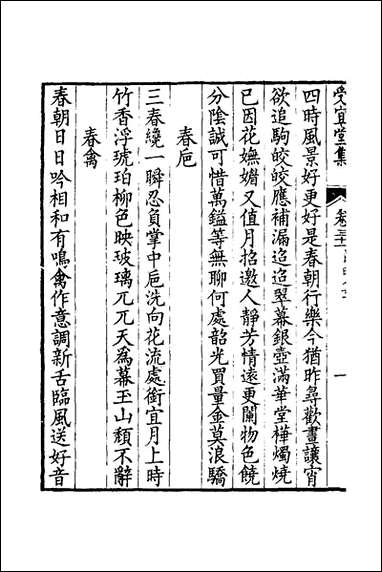 受宜堂集
卷三十
一
四時風景好更好是春朝行樂今猶昨尋歡晝讓宵
欲追駒皎皎應補漏迢迢翠幕銀壺滿華堂樺燭燒
已因花嫵媚又值月招邀人靜芳情遠更闌物色饒
分陰誠可惜萬鎰等無聊何處韶光買量金莫浪驕
春巵
三春纔一瞬忍負掌中巵洗向花流處銜宜月上時
竹香浮琥珀柳色映玻璃兀兀天爲幕玉山頹不辭
春禽
春朝日日吟相和有鳴禽作意調新舌臨風送好音